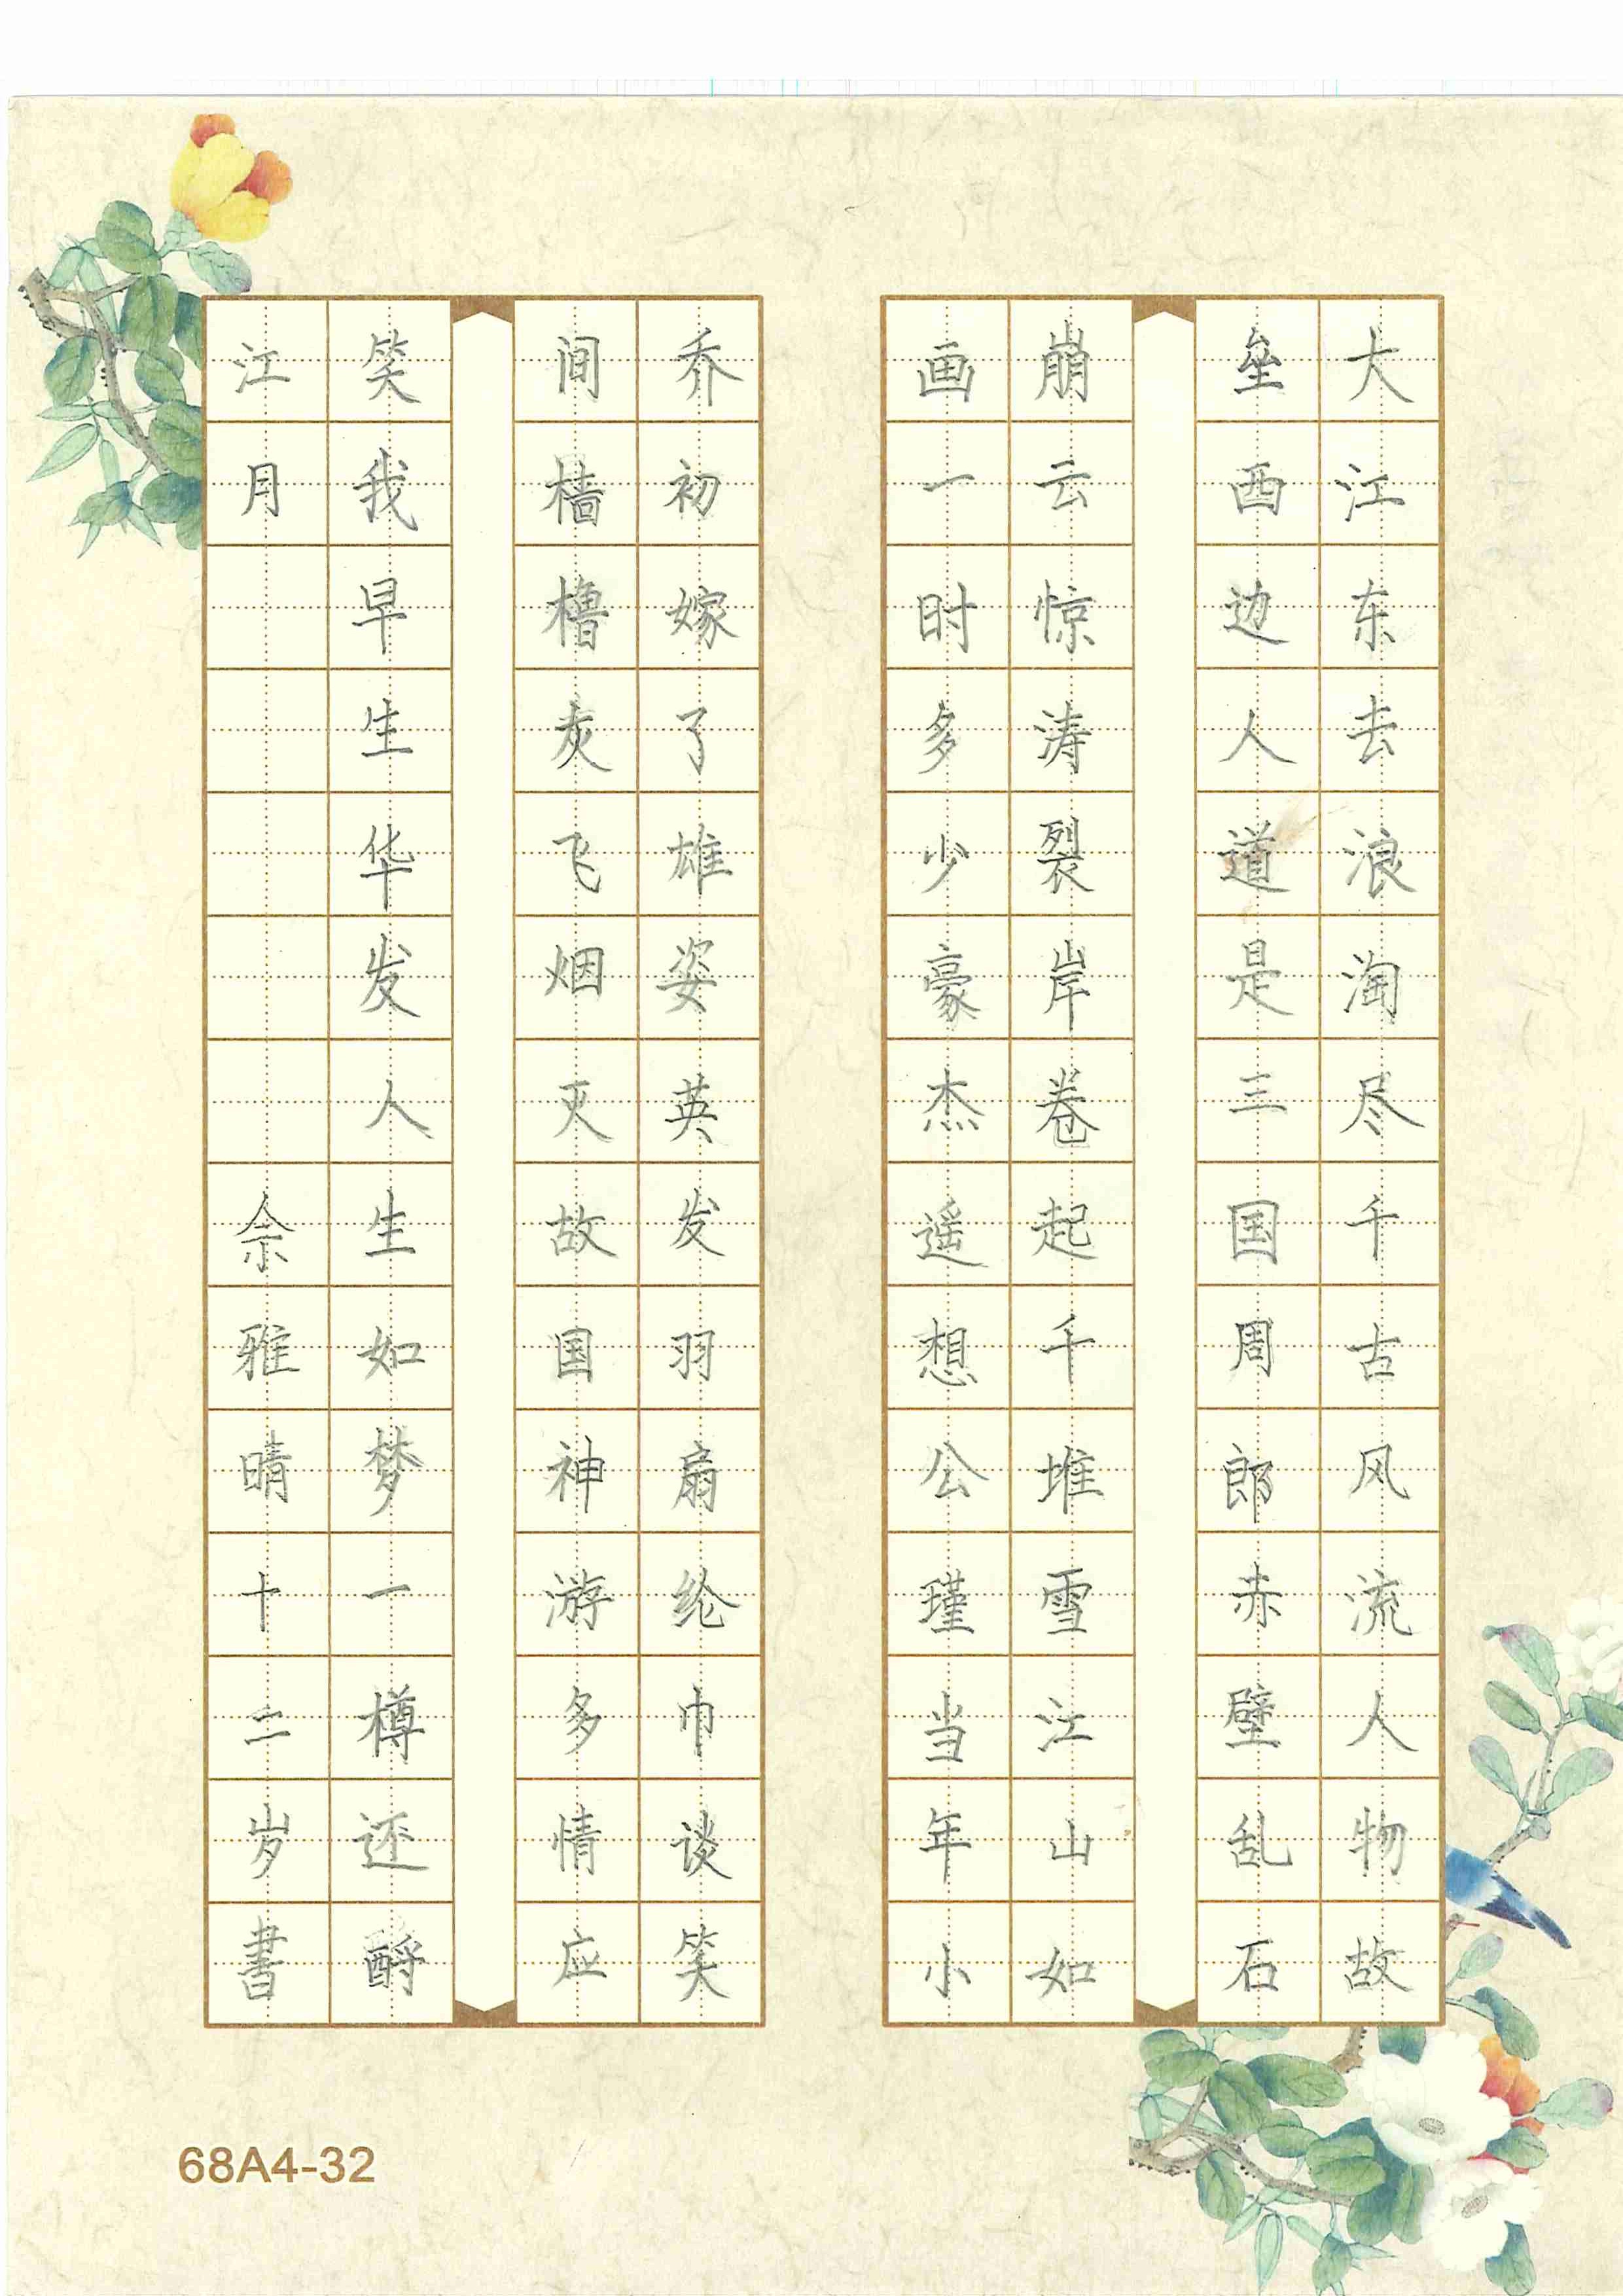 大江东去浪淘尽千古风流人物故
垒西边人道是三国周郎赤壁乱石
崩云惊涛裂岸卷起千堆雪江山如
画一时多少豪杰遥想公瑾当年小
乔初嫁了雄姿英发羽扇纶巾谈笑
间樯橹灰飞烟灭故国神游多情应
笑我早生华发人生如梦一樽还酹
江月 佘雅晴十二岁書
68A4-32